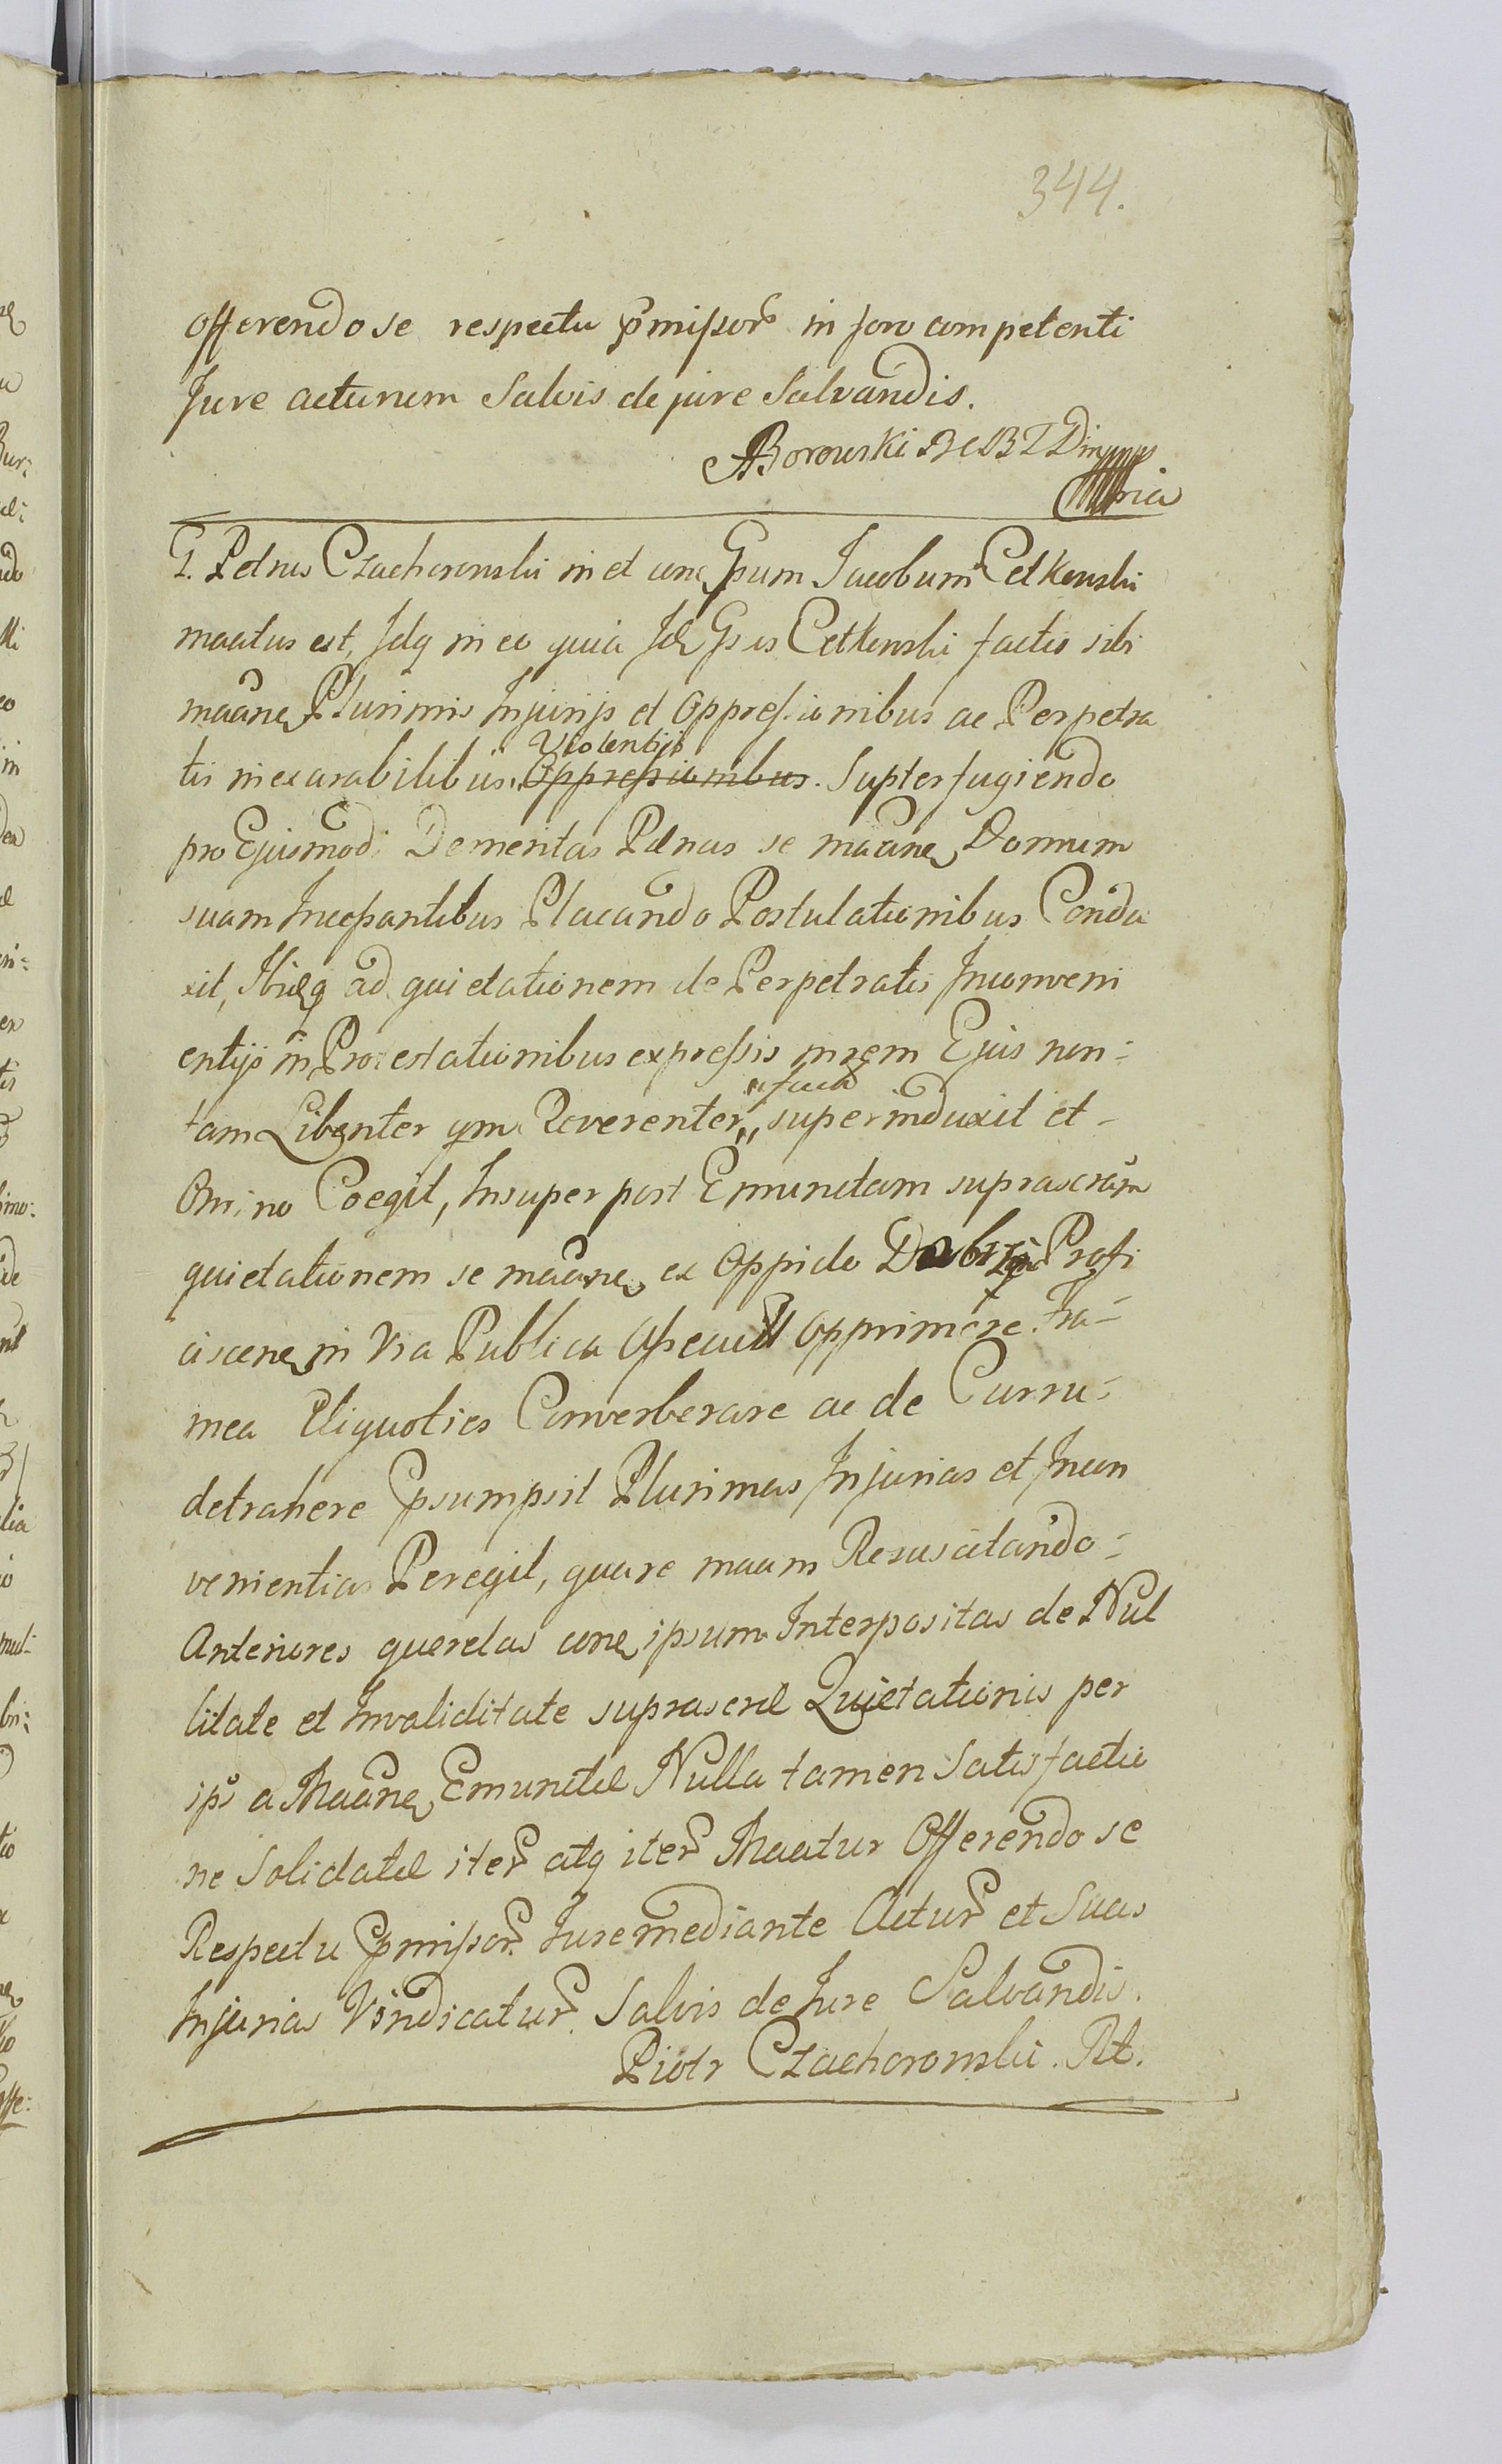 344.
offerendo se respectu pmissor in foro competenti
Jure acturum Salvis de jure Salvandis.
ABorowski
mria
G. Petrus Czachorowski in et cone Gsum Jacobum Cetkowski
maatus est, Idq in eo quia Id Gsus Cetkowski factis sibi
maane Plurimis Injurijs et Oppressionibus ac Perpetra
tis inexarabilibus Violentijs Oppressionibus. Supterfugiendo
pro Ejusmodi Demeritas Pænas se maane Domum
suam Incessantibus Placando Postulationibus Condu
xit, Ibidq ad quietationem de Perpetratis Inconveni
entijs in Protestationibus expressis in rem Ejus non-
tam Libenter qm Reverenter superinduxit et-
Omino Coegit, Insuper post Emunctam suprascram
quietationem se maane ex Oppido Profi
ciscene in Via Publica Assecuit opprimere. Fra-
mea Aliquoties Converberare ac de Curru-
detrahere Psumpsit Plurimas Injurias et Incon
venientias Peregit, quare maam Resuscitando-
Anteriores querelas cone ipsum Interpositas de Nul
litate et Invaliditate suprascræ Quietationis per
ips a Maane Emunctæ Nulla tamen Satisfactio
ne Solidatæ iter atq iter Maatur Offerendo se
Respectu Pmissor Jure mediante Actur et Suas
Injurias Vindicatur. Salvis de Jure Salvandis.
Piotr Czachorowski. Rt.